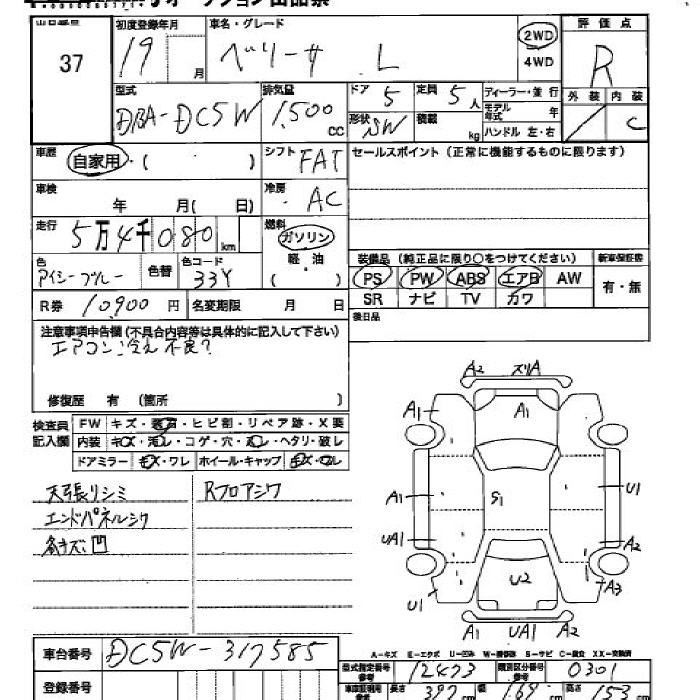 オークション出品票
出品番号 37
初度登録年月 19 月
車名・グレード ベリーサ L
2WD 4WD
評価点 R
外装 内装 C
型式 DBA-DC5W
排気量 1,500 cc
ドア 5 定員 5人
形状 SW 積載 kg
ディーラー・並行
モデル年式 年
ハンドル 左・右
車歴 自家用・( )
シフト FAT
セールスポイント(正常に機能するものに限ります)
車検 年 月( 日)
冷房 AC
走行 5万4千080 km
燃料 ガソリン 軽油 ( )
色 アイシーブルー 色替 色コード 33Y
装備品(純正品に限り○をつけてください) 新車保証書
PS PW ABS エアB AW
SR ナビ TV カワ 有・無
R券 10900円 名変期限 月 日
後日品
注意事項申告欄(不具合内容等は具体的に記入して下さい)
エアコン冷え不良?
修復歴 有 (箇所 )
検査員記入欄 FW キズ・飛石・ヒビ割・リペア跡・X要
内装 キズ・汚レ・コゲ・穴・スレ・ヘタリ・破レ
ドアミラー キズ・ワレ ホイール・キャップ キズ・ワレ
天張りシミ Rフロアシワ
エンドパネルシワ
各キズ凹
A2 ズリA
A1 A1
A1 S1 U1
UA1 A2
U2 A3
U1
A1 UA1 A2
車台番号 DC5W-317585
登録番号
A-キズ E-エクボ U-凹み W-補修跡 S-サビ C-腐食 XX-交換済
型式指定番号 参考 12473 類別区分番号 参考 0301
車庫証明用 参考 長さ 397cm 幅 169cm 高さ 153cm